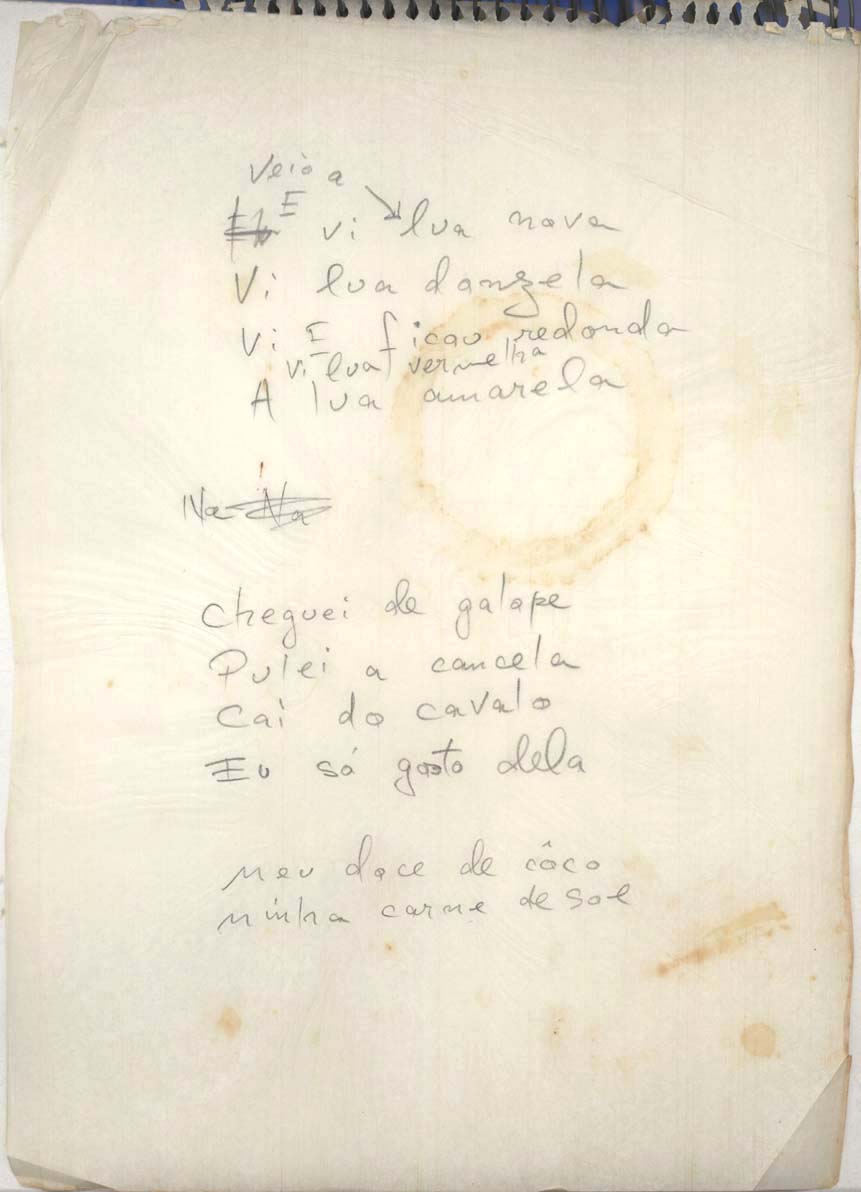 Veio a
E vi lua nova
Vi lua donzela
Vi E ficou redonda
vi lua vermelha
A lua amarela
Na Na
Cheguei de galope
Pulei a cancela
Cai do cavalo
Eu só gosto dela
Meu doce de côco
Minha carne de sol